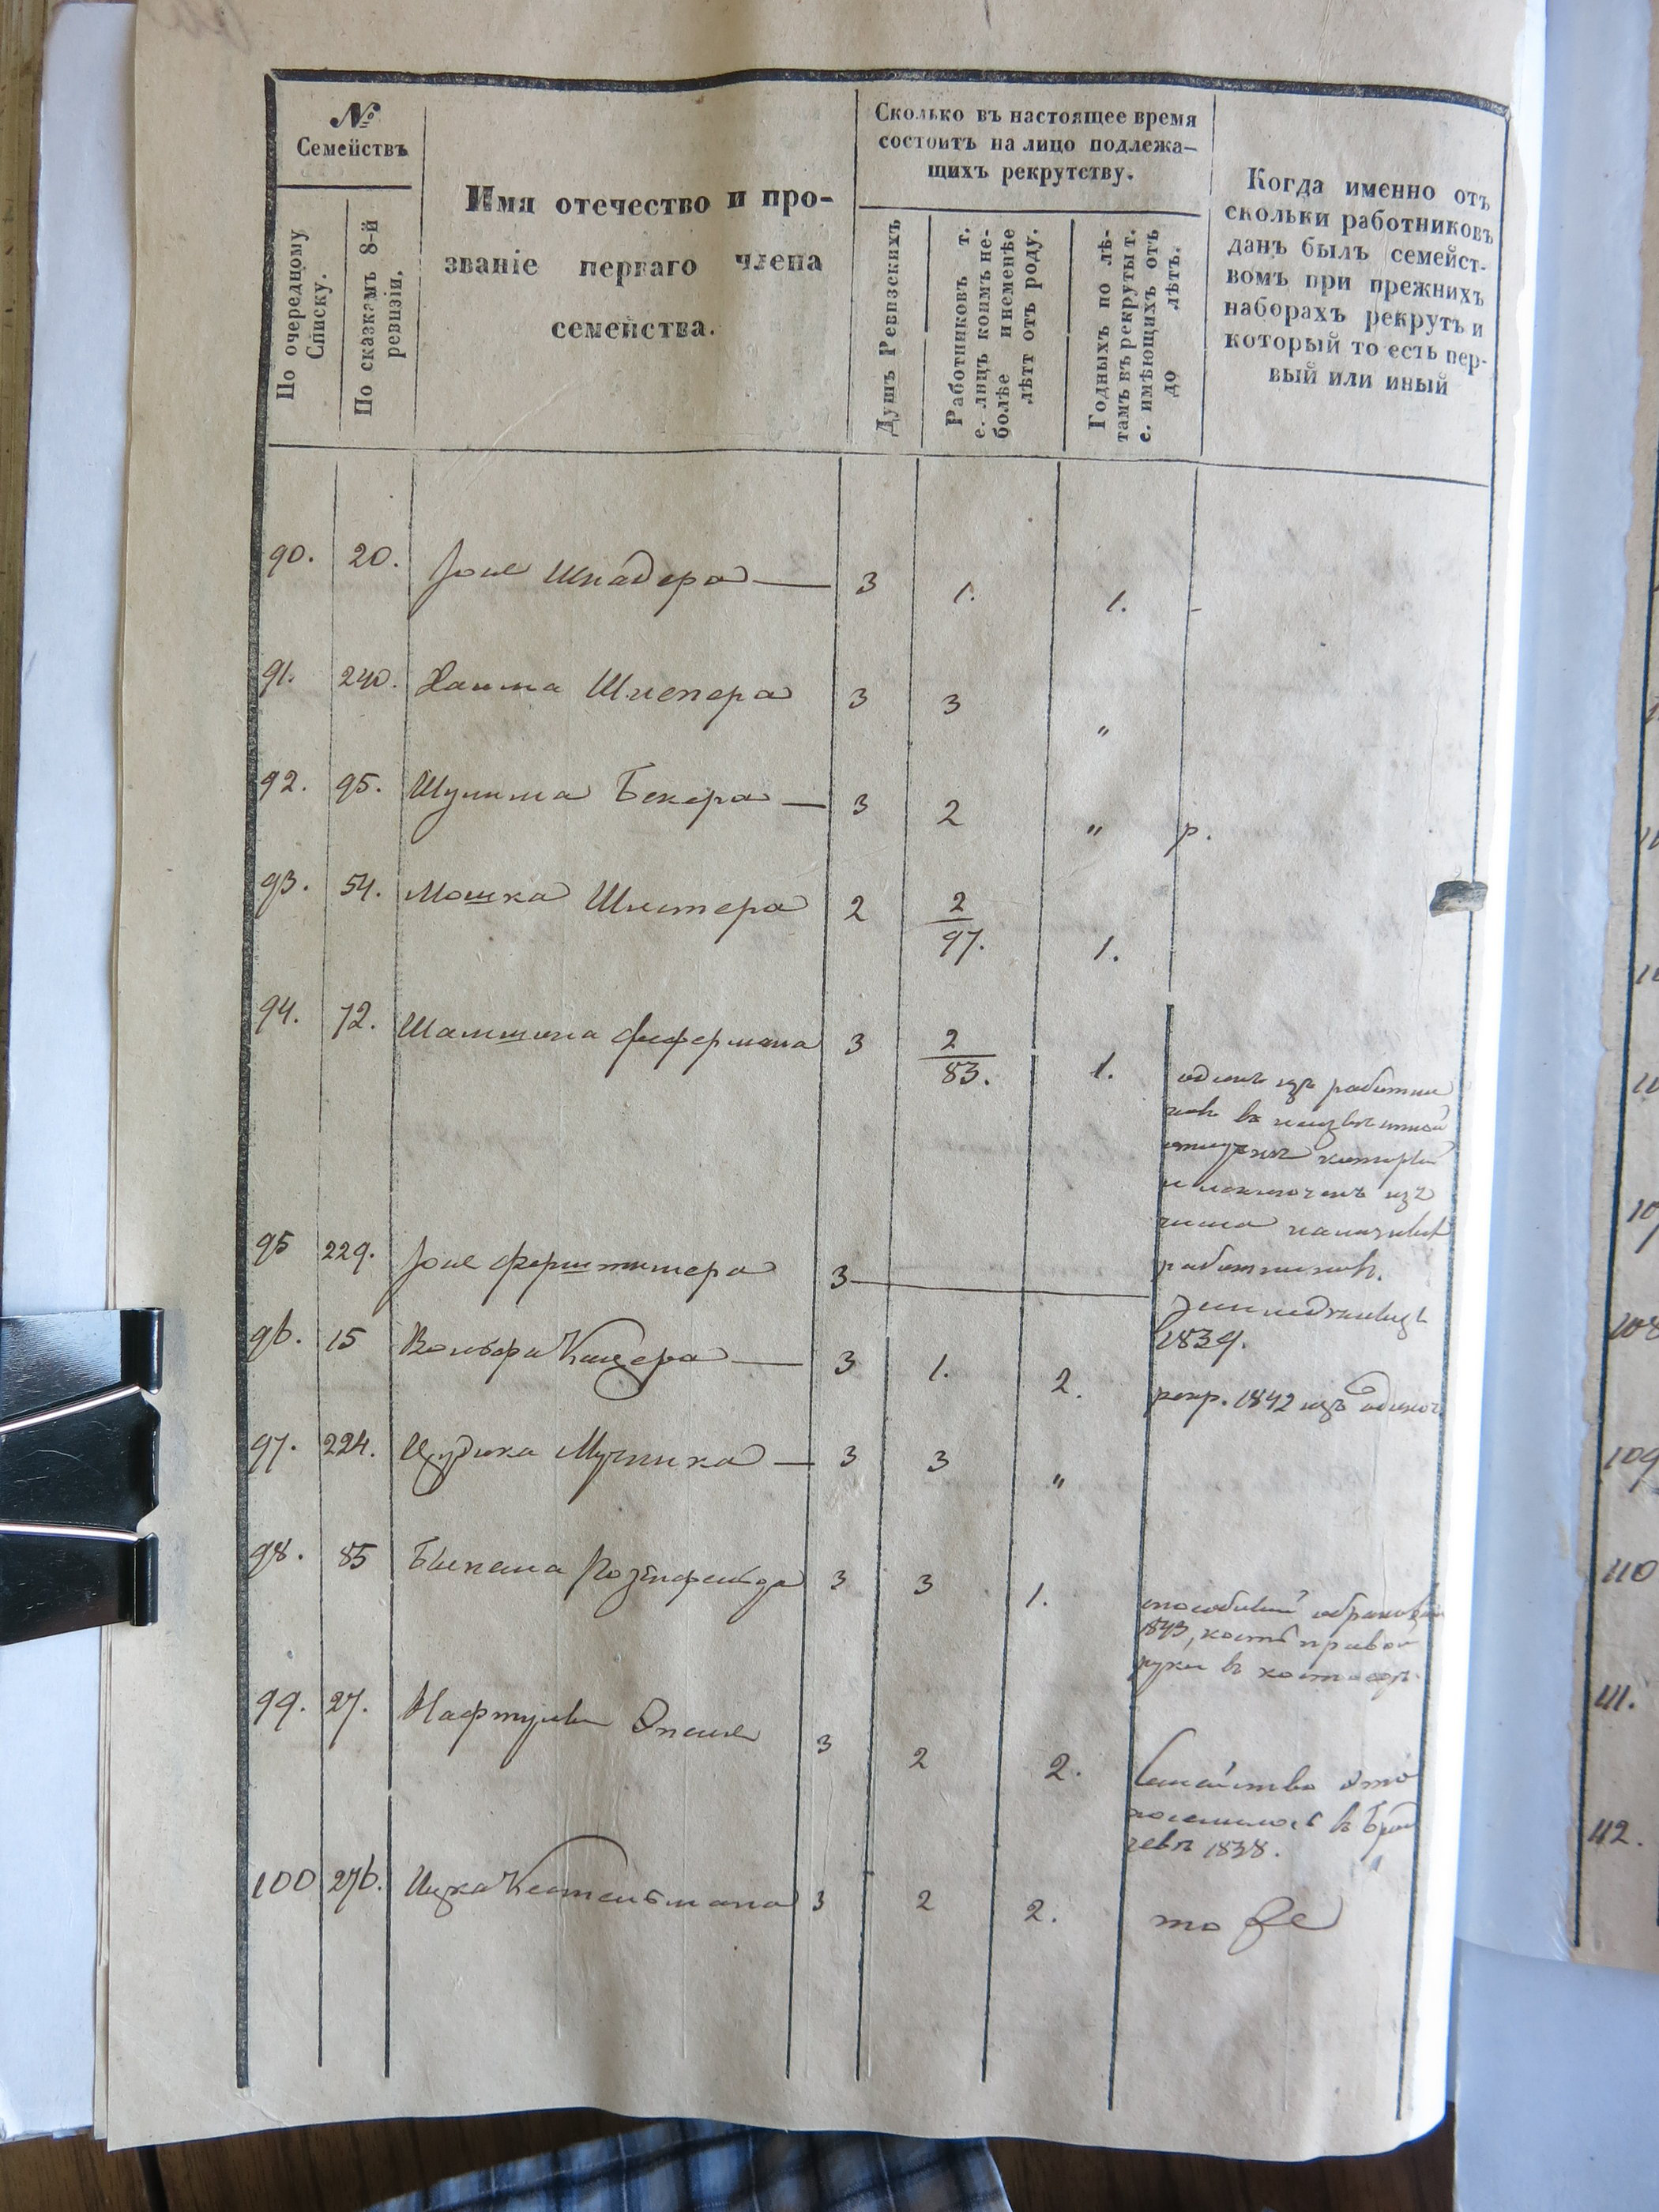 №
Семействъ
По очередному
Списку.
По сказкамъ 8-й
ревизіи.
Имя отечество и про-
званіе перваго члена
семейства.
Сколько въ настоящее время
состоитъ на лицо подлежа-
щихъ рекрутству.
Душъ Ревизскихъ
Работниковъ т.
е. лицъ коимъ не-
болѣе и неменѣе
лѣтъ отъ роду.
Годныхъ по лѣ-
тамъ въ рекруты т.
е. имѣющихъ отъ
до лѣтъ.
Когда именно отъ
скольки работниковъ
данъ былъ семейст-
вомъ при прежнихъ
наборахъ рекрутъ и
который то есть пер-
вый или иный
90. 20. Іоне Шнадера 3 1. 1. -
91. 240. Хаима Шлепера 3 3 "
92. 95. Шулима Бекера 3 2 " р.
93. 54. Мошка Шистера 2 2/97. 1.
94. 72. Шамшона Фефермана 3 2/83. 1.
одинъ изъ работни
ковъ въ неизвѣстной
отлучкѣ который
и исключенъ изъ
числа наличныхъ
работниковъ.
95 229. Іоне Ферштитера 3
1839.
96. 15 Вольфа Кацера 3 1. 2. рекр. 1842 изъ одиноч
97. 224. Мучника 3 3 "
98. 85 Розенфельда 3 3 1.
способный обракован
1843, кость правой
руки
99. 27. Нафтули 3 2 2.
Семейство это
поселилось въ
1838.
100 276. Ицка Кестельмана 3 2 2. то же